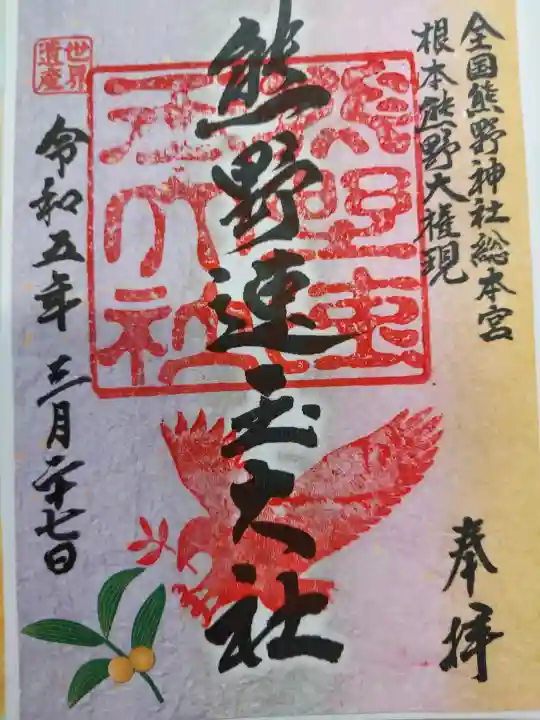 全国熊野神社総本宮
根本熊野大権現
奉拝
熊野速玉大社
令和五年三月二十七日
世界
遺産